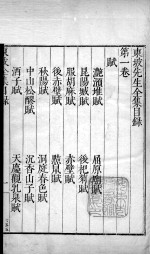 東坡先生全集目録
第一卷
賦
灩澦堆賦
屈原廟賦
昆陽城賦
後杞菊賦
服胡麻賦
赤壁賦
後赤壁賦
黠鼠賦
秋陽賦
洞庭春色賦
中山松醪賦
沉香山子賦
酒子賦
天慶觀乳泉賦